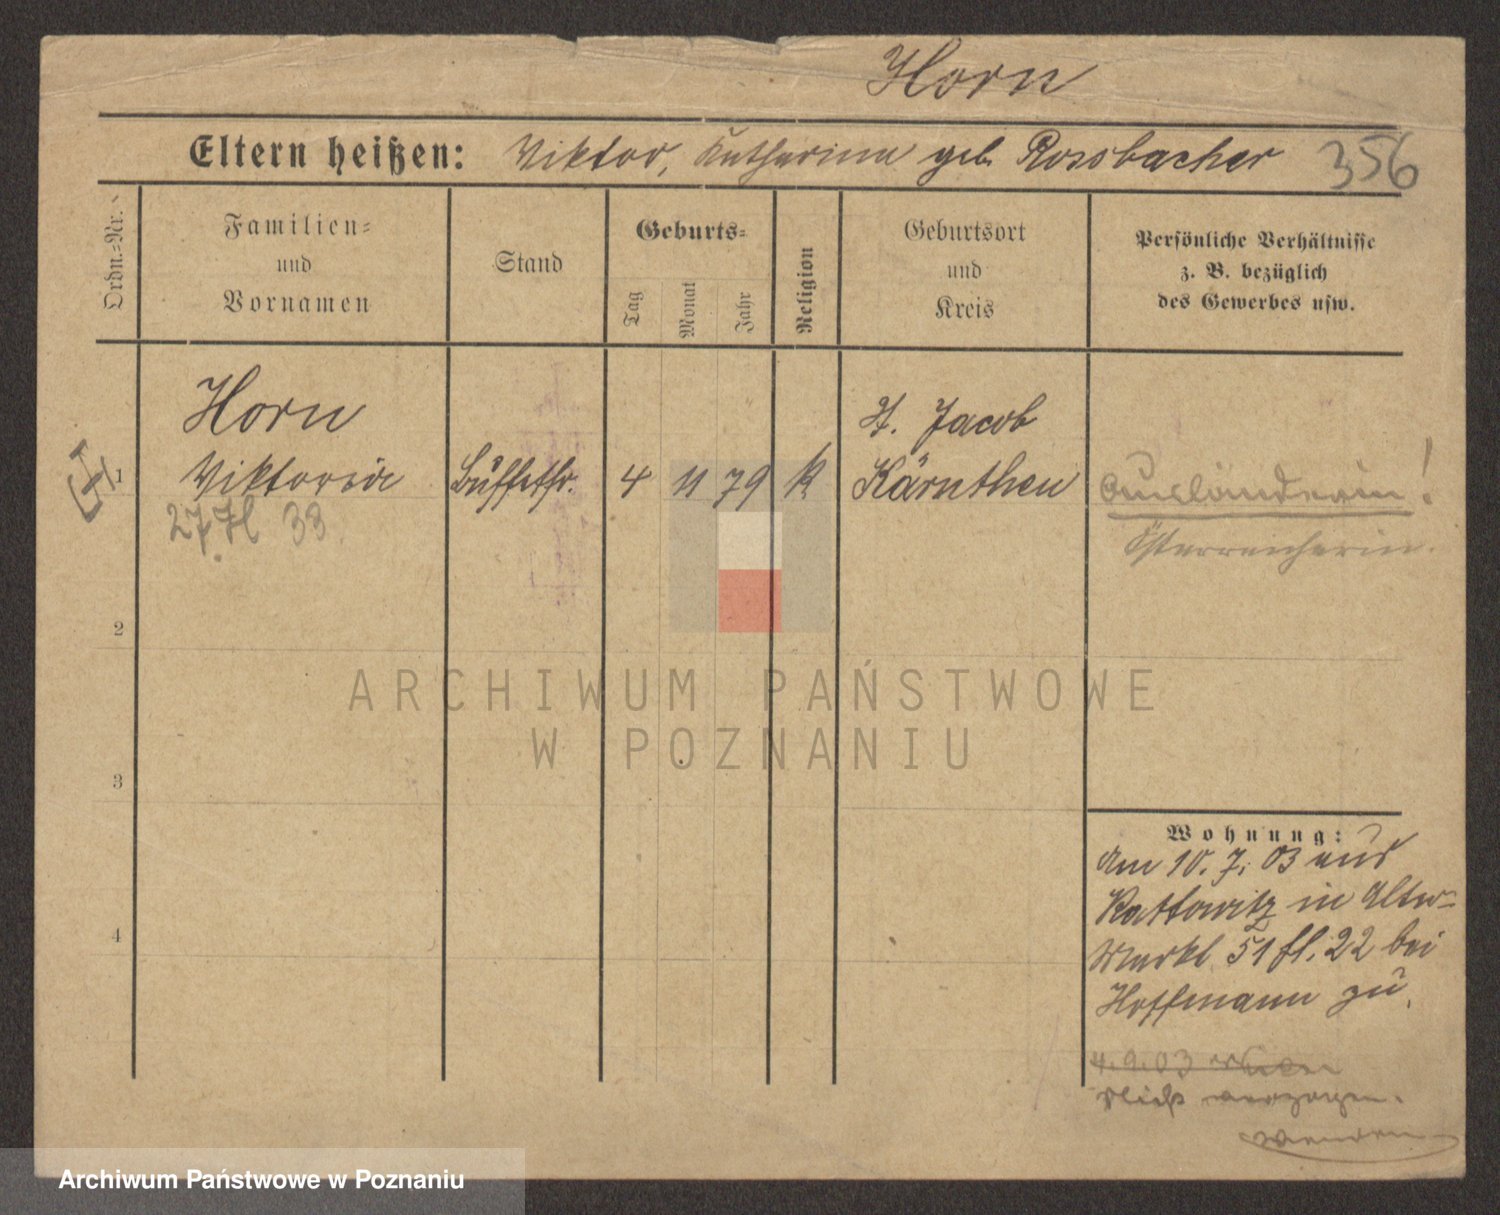 Horn
Eltern heißen: Viktor, Katharina geb. Rossbacher 356
Ordn.-Nr.
Familien-
und
Vornamen
Stand
Geburts-
Tag
Monat
Jahr
Religion
Geburtsort
und
Kreis
Persönliche Verhältnisse
z. B. bezüglich
des Gewerbes usw.
Horn
St. Jacob
1 Viktoria Büffetfr. 4 11 79 k Kärnthen Ausländerin!
27 33
Österreicherin.
2
3
4
ARCHIWUM PAŃSTWOWE
W POZNANIU
Wohnung:
Am 10. 7. 03 aus
Kattowitz in Alter-
Markt 51 fl. 22 bei
Hoffmann zu.
4.9.03
verzogen.
wenden
Archiwum Państwowe w Poznaniu